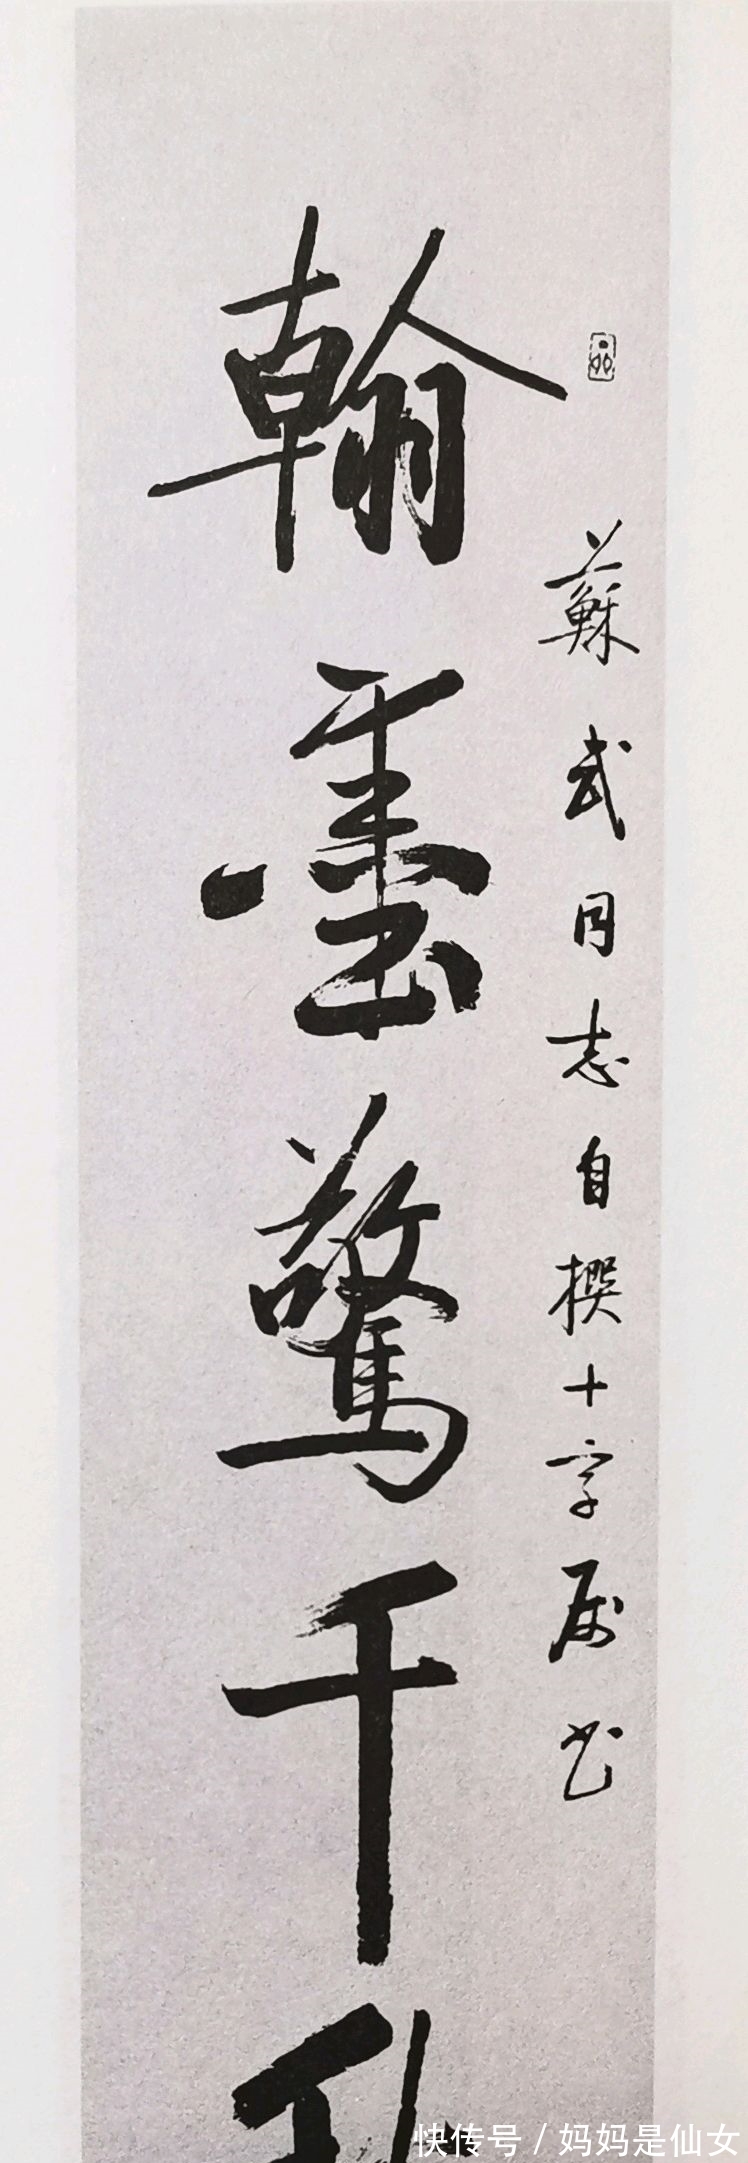 蘇武同志自撰十字属书
翰墨驚千
快传号/妈妈是仙女